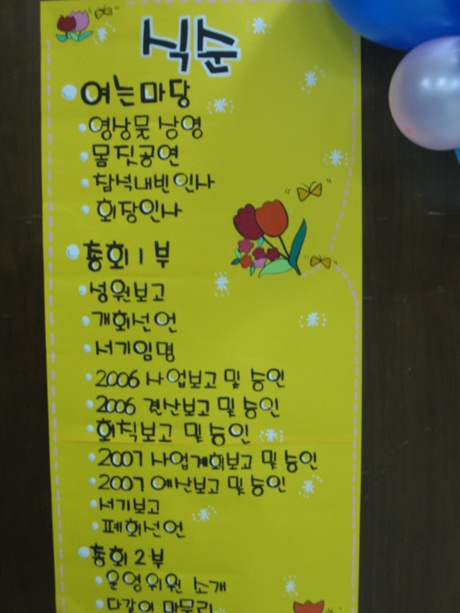 식순
여는마당
영상물 상영
몸짓공연
참석내빈인사
회장인사
총회 1부
성원보고
개회선언
서기임명
2006 사업보고 및 승인
2006 결산보고 및 승인
회칙보고 및 승인
2007 사업계획보고 및 승인
2007 예산보고 및 승인
서기보고
폐회선언
총회 2부
운영위원 소개
다같이 마무리